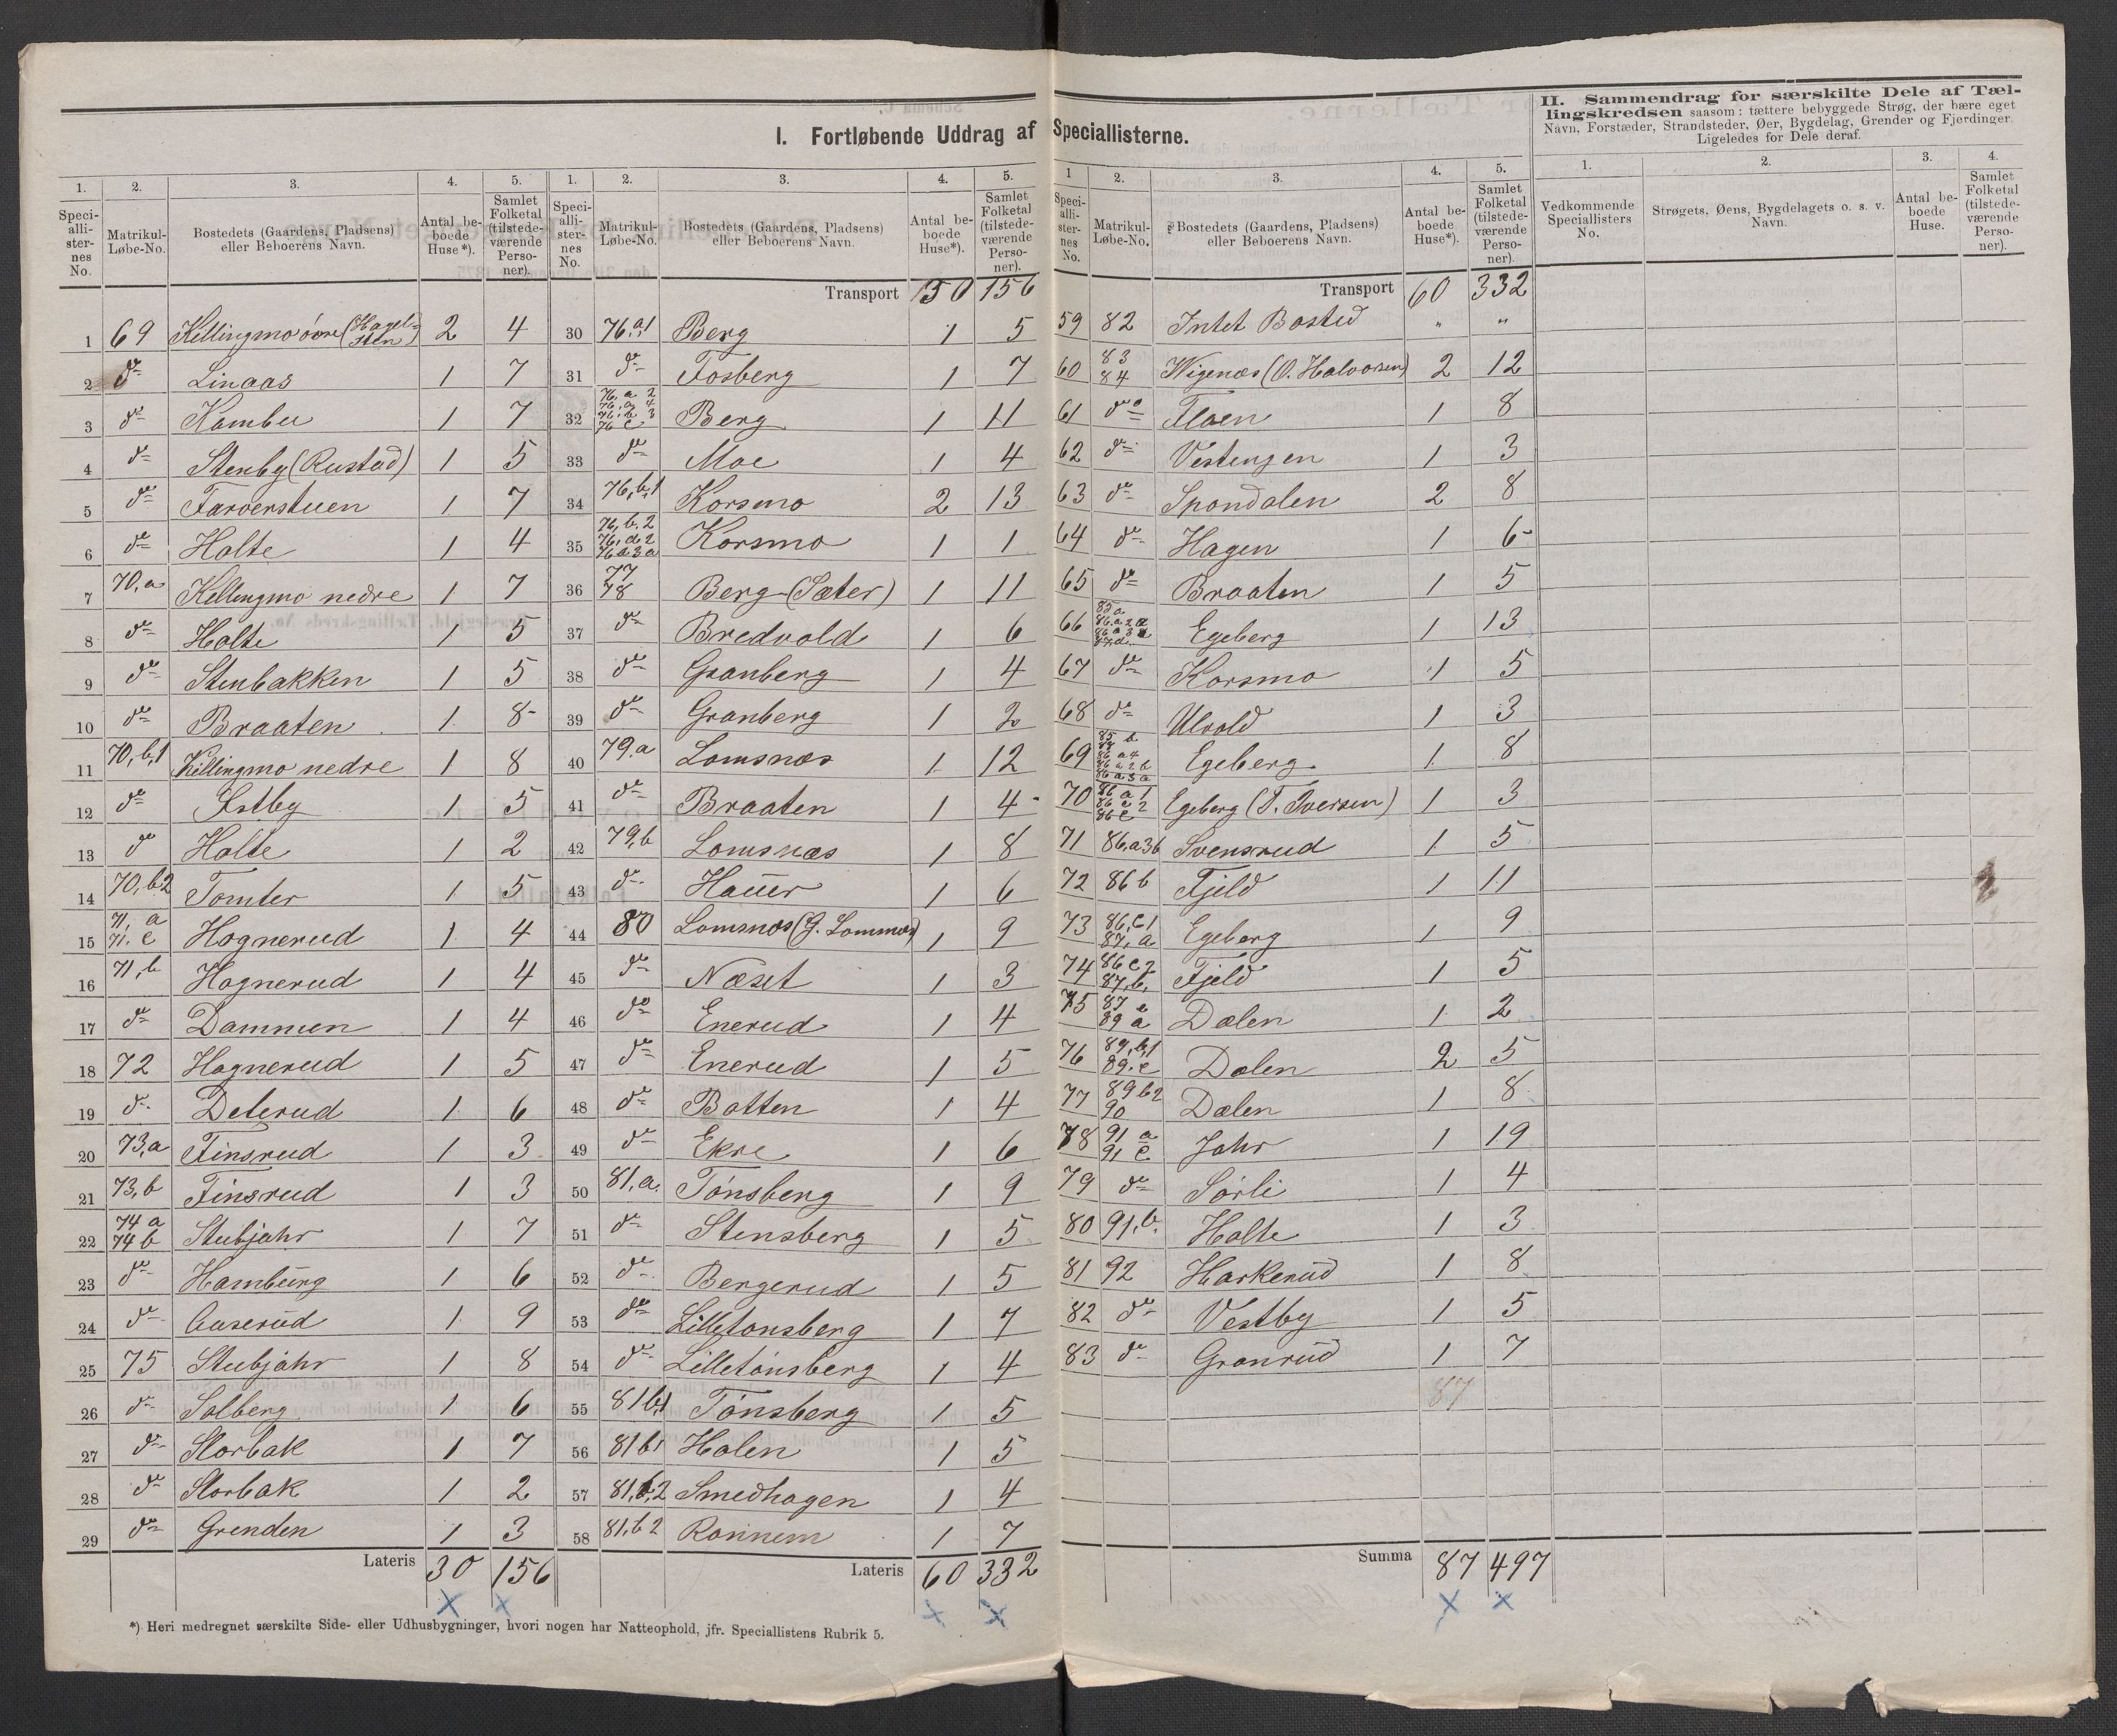 I. Fortløbende Uddrag af Speciallisterne.
II. Sammendrag for særskilte Dele af Tæl-
lingskredsen saasom: tættere bebyggede Strøg, der bære eget
Navn, Forstæder, Strandsteder, Øer, Bygdelag, Grender og Fjerdinger.
Ligeledes for Dele deraf.
1. 2. 3. 4. 5.
Speci-alli-ster-nes No. Matrikul-Løbe-No. Bostedets (Gaardens, Pladsens) eller Beboerens Navn. Antal be-boede Huse*). Samlet Folketal (tilstede-værende Perso-ner).
1 69 Kellingmo övre (Hagel-sten) 2 4
2 do Linaas 1 7
3 do Kambu 1 7
4 do Stenby (Rustad) 1 5
5 do Farverstuen 1 7
6 do Holte 1 4
7 70,a Kellingmo nedre 1 7
8 do Holte 1 5
9 do Stenbakken 1 5
10 do Braaten 1 8
11 70,b,1 Killingmo nedre 1 8
12 do Østby 1 5
13 do Holte 1 2
14 70,b2 Tomter 1 5
15 71, a 71. c Hognerud 1 4
16 71,b Hognerud 1 4
17 do Dammen 1 4
18 72 Hognerud 1 5
19 do Delerud 1 6
20 73,a Finsrud 1 3
21 73,b Finsrud 1 3
22 74 a 74 b Stubjahr 1 7
23 do Hamburg 1 6
24 do Guserud 1 9
25 75 Stubjahr 1 8
26 do Solberg 1 6
27 do Storbak 1 7
28 do Storbak 1 2
29 do Grenden 1 3
Lateris 30 156
1. 2. 3. 4. 5.
Speci-alli-ster-nes No. Matrikul-Løbe-No. Bostedets (Gaardens, Pladsens) eller Beboerens Navn. Antal be-boede Huse*). Samlet Folketal (tilstede-værende Perso-ner).
Transport 30 156
30 76.a1 Berg 1 5
31 do Fosberg 1 7
32 76,a 2 76,a 4 76,b 3 76 c Berg 1 11
33 do Moe 1 4
34 76,b,1 Korsmo 2 13
35 76,b.2 76,d2 76a3a Korsmo 1 1
36 77 78 Berg (Sæter) 1 11
37 do Bredvold 1 6
38 do Granberg 1 4
39 do Granberg 1 2
40 79.a Lomsnæs 1 12
41 do Braaten 1 4
42 79,b Lomsnæs 1 8
43 do Hauer 1 6
44 80 Lomsnæs (G. Lommæs) 1 9
45 do Næset 1 3
46 do Enerud 1 4
47 do Enerud 1 5
48 do Batten 1 4
49 do Ekre 1 6
50 81,a. Tönsberg 1 9
51 do Stensberg 1 5
52 do Bergerud 1 5
53 do Lilletonsberg 1 7
54 do Lilletönsberg 1 4
55 81b,1 Tönsberg 1 5
56 81b1 Holen 1 5
57 81,b,2 Smedhagen 1 4
58 81,b2 Ronnem 1 7
Lateris 60 332
1 2. 3. 4. 5.
Speci-alli-ster-nes No. Matrikul-Løbe-No. Bostedets (Gaardens, Pladsens) eller Beboerens Navn. Antal be-boede Huse*). Samlet Folketal (tilstede-værende Perso-ner).
Transport 60 332
59 82 Intet Bosted " "
60 83 84 Wigenæs (O. Halvorsen) 2 12
61 do Floen 1 8
62 do Vestengen 1 3
63 do Spondalen 2 8
64 do Hagen 1 6
65 do Braaten 1 5
66 85a 86.a2a 86a3a 87,d Egeberg 1 13
67 do Korsmo 1 5
68 do Ulvold 1 3
69 85 b 86 a4 86 a 2 b 86 a 3 a Egeberg 1 8
70 86 a 1 86 c 2 86 c Egeberg (T. Iversen) 1 3
71 86,a3b Svensrud 1 5
72 86b Fjeld 1 11
73 86,c1 87, a Egeberg 1 9
74 86c2 87,b, Fjeld 1 5
75 87 c 89 a Dælen 1 2
76 89,b,1 89.c Dælen 2 5
77 89b2 90 Dælen 1 8
78 91 a 91 c Jahr 1 19
79 do Sörli 1 4
80 91,b. Holte 1 3
81 92 Harkerud 1 8
82 do Vestby 1 5
83 do Granrud 1 7
87
Summa 87 497
1. 2. 3. 4.
Vedkommende Speciallisters No. Strøgets, Øens, Bygdelagets o. s. v. Navn. Antal be-boede Huse. Samlet Folketal (tilstede-værende Perso-ner).
*) Heri medregnet særskilte Side- eller Udhusbygninger, hvori nogen har Natteophold, jfr. Speciallistens Rubrik 5.